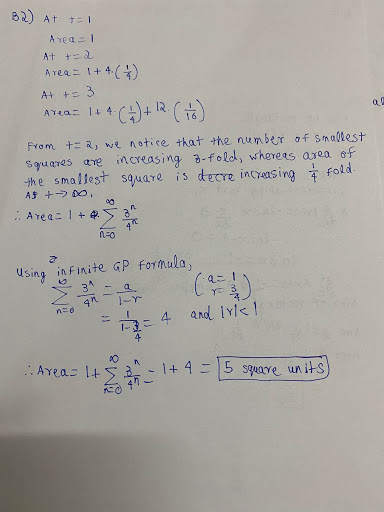 32) At t=1
Area=1
At t=2
Area= 1+4.(1/4)
At t=3
Area= 1+4.(1/4)+12.(1/16)
From t=2, we notice that the number of smallest
squares are increasing 3-fold, whereas area of
the smallest square is increasing 1/4 fold.
As t→∞,
∴ Area= 1+ ∞∑n=0 3^n/4^n
Using infinite GP formula,
∞∑n=0 3^n/4^n = a/(1-r) (a=1 r=3/4)
= 1/(1-3/4) = 4 and |r|<1
∴ Area= 1+ ∞∑n=0 3^n/4^n = 1+4 = 5 square units